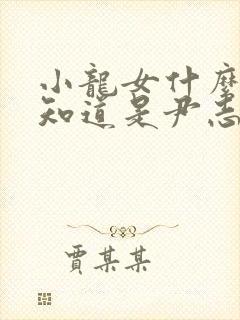 小龍女什麼
知道是尹志
賈某某